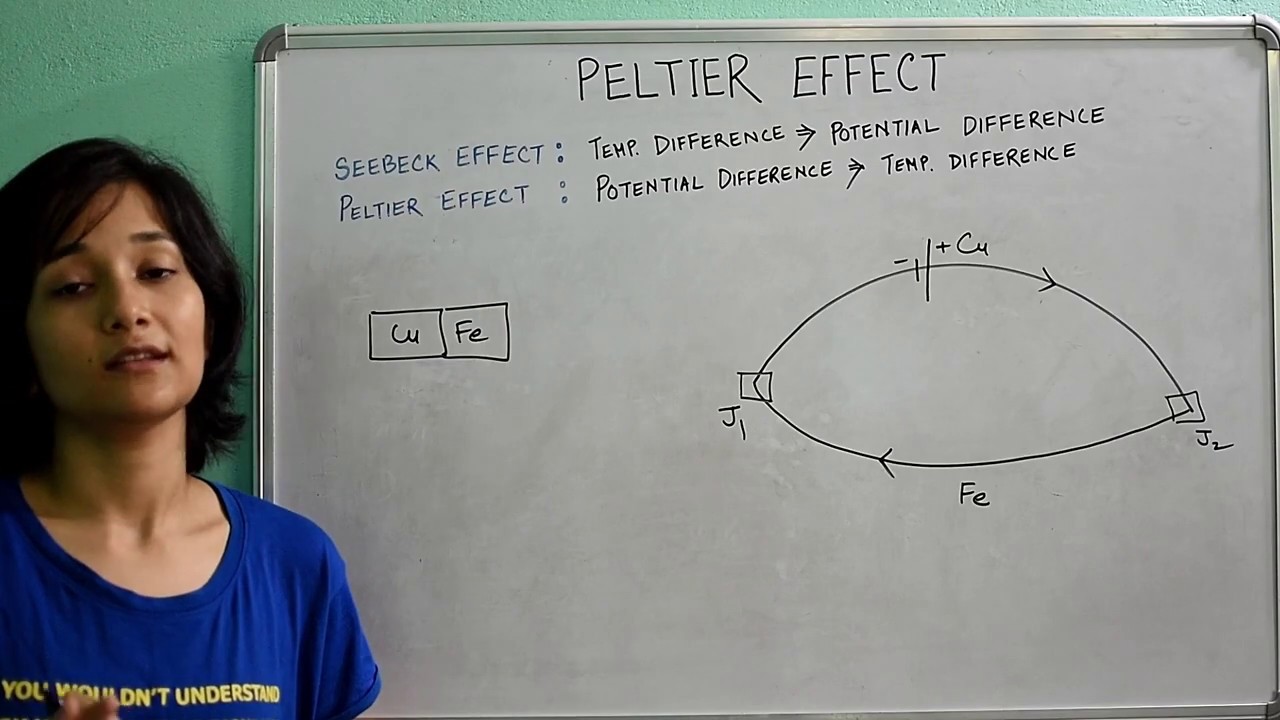 PELTIER EFFECT
SEEBECK EFFECT : TEMP. DIFFERENCE ⇒ POTENTIAL DIFFERENCE
PELTIER EFFECT : POTENTIAL DIFFERENCE ⇒ TEMP. DIFFERENCE
- + Cu
Cu Fe
J1
J2
Fe
YOU WOULDN'T UNDERSTAND